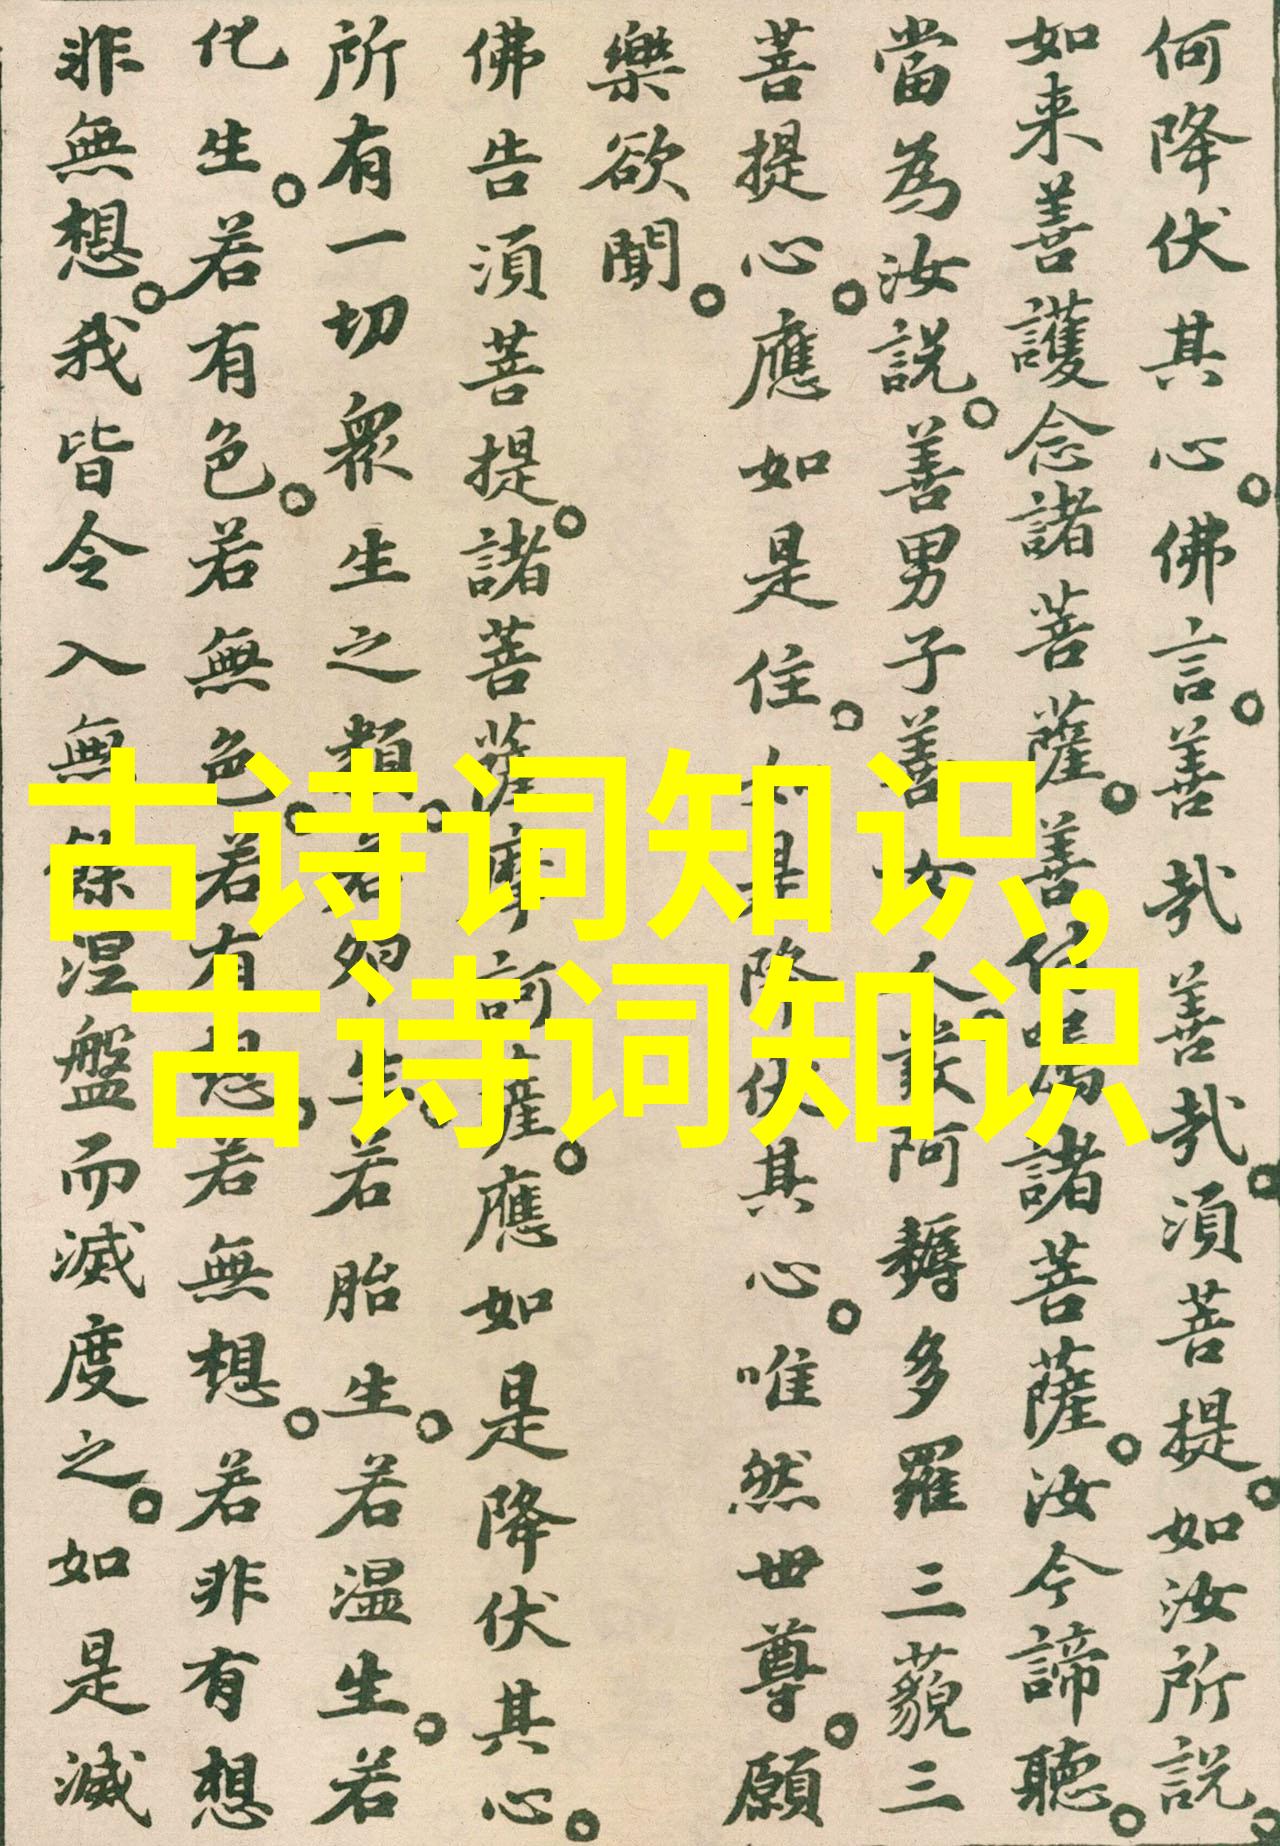 何降伏其心。佛言。善哉善哉。須菩提。如汝所説。
如来善護念諸菩薩。善付囑諸菩薩。汝今諦聽。
當為汝説。善男子善女人。發阿耨多羅三藐三
菩提心。應如是住。如是降伏其心。唯然世尊。願
樂欲聞。
佛告須菩提。諸菩薩摩訶薩。應如是降伏其心。
所有一切衆生之類。若卵生。若胎生。若温生。若
化生。若有色。若無色。若有想。若無想。若非有想
非無想。我皆令入無餘涅盤而滅度之。如是滅
古诗词知识,
古诗词知识